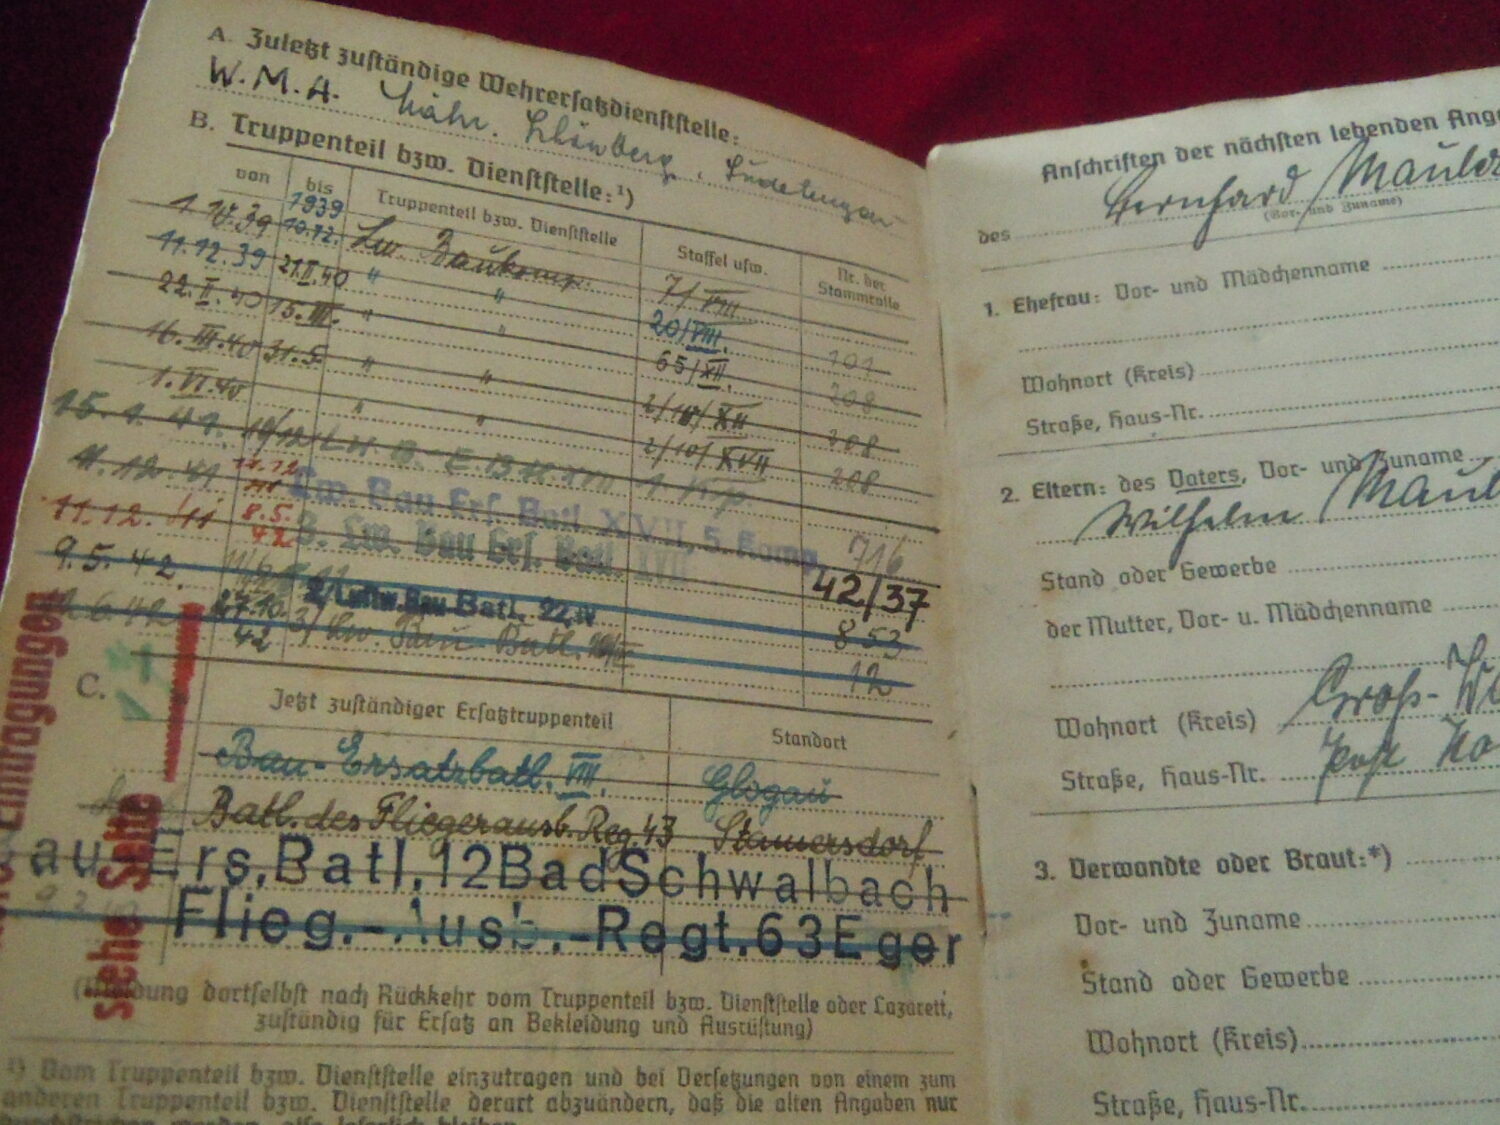 A. Zuletzt zuständige Wehrersatzdienststelle:
W.M.A. Mähr. Schönberg, Sudetengau
B. Truppenteil bzw. Dienststelle:¹)
von bis Truppenteil bzw. Dienststelle Staffel usw. Nr. der Stammrolle
1939
10.12. Lw. Baukomp. 7/VIII
11.12.39 21.II.40 " " 20/VIII. 101
22.II.40 15.III. " " 65/XII. 208
16.III.40 31.5. " " 2/10/XII 208
1.VI.40 " " 2/10/XVII 208
15.1.41.
11.12.41 Lw. Bau Ers. Batl. XVII, 5. Komp. 716
11.12.41 8.5.42 3. Lw. Bau Ers. Batl. XVII 42/37
9.5.42. 2/Luftw. Bau Batl. 853
27.10.42 3/ Lw. Bau Batl. 12
C.
Jetzt zuständiger Ersatztruppenteil Standort
Bau-Ersatzbatl. VIII. Glogau
Batl. des Fliegerausb. Reg. 43 Stamersdorf
Bau-Ers.Batl.12 Bad Schwalbach
Flieg.-Ausb.-Regt.63 Eger
(Meldung dortselbst nach Rückkehr vom Truppenteil bzw. Dienststelle oder Lazarett,
zuständig für Ersatz an Bekleidung und Ausrüstung)
¹) Vom Truppenteil bzw. Dienststelle einzutragen und bei Versetzungen von einem zum
anderen Truppenteil bzw. Dienststelle derart abzuändern, daß die alten Angaben nur
Eintragungen
siehe Seite
Anschriften der nächsten lebenden
des Bernhard
(Vor- und Zuname)
1. Ehefrau: Vor- und Mädchenname
Wohnort (Kreis)
Straße, Haus-Nr.
2. Eltern: des Vaters, Vor- und Zuname
Wilhelm
Stand oder Gewerbe
der Mutter, Vor- u. Mädchenname
Wohnort (Kreis) Groß-
Straße, Haus-Nr. Post
3. Verwandte oder Braut:*)
Vor- und Zuname
Stand oder Gewerbe
Wohnort (Kreis)
Straße, Haus-Nr.